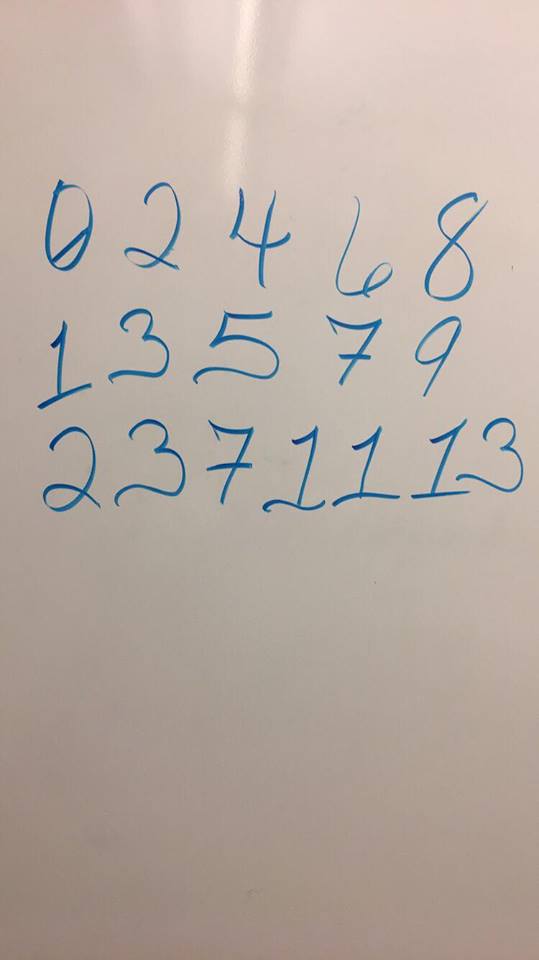 0 2 4 6 8
1 3 5 7 9
2 3 7 11 13